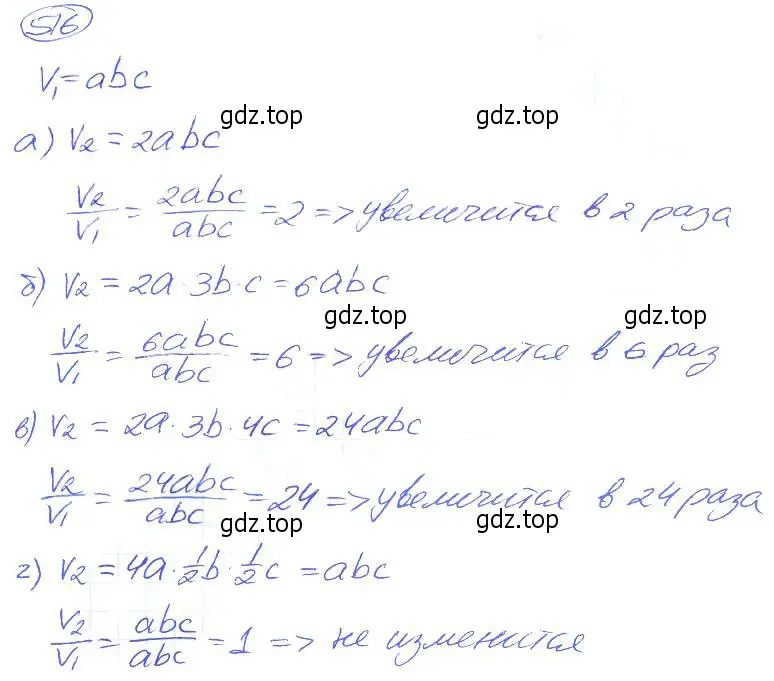 516
V₁ = abc
gdz.top gdz.top
а) V₂ = 2abc
V₂/V₁ = 2abc/abc = 2 => увеличится в 2 раза
б) V₂ = 2a · 3b · c = 6abc
gdz.top gdz.top
V₂/V₁ = 6abc/abc = 6 => увеличится в 6 раз
в) V₂ = 2a · 3b · 4c = 24abc
V₂/V₁ = 24abc/abc = 24 => увеличится в 24 раза
gdz.top gdz.top
г) V₂ = 4a · 1/2b · 1/2c = abc
V₂/V₁ = abc/abc = 1 => не изменится